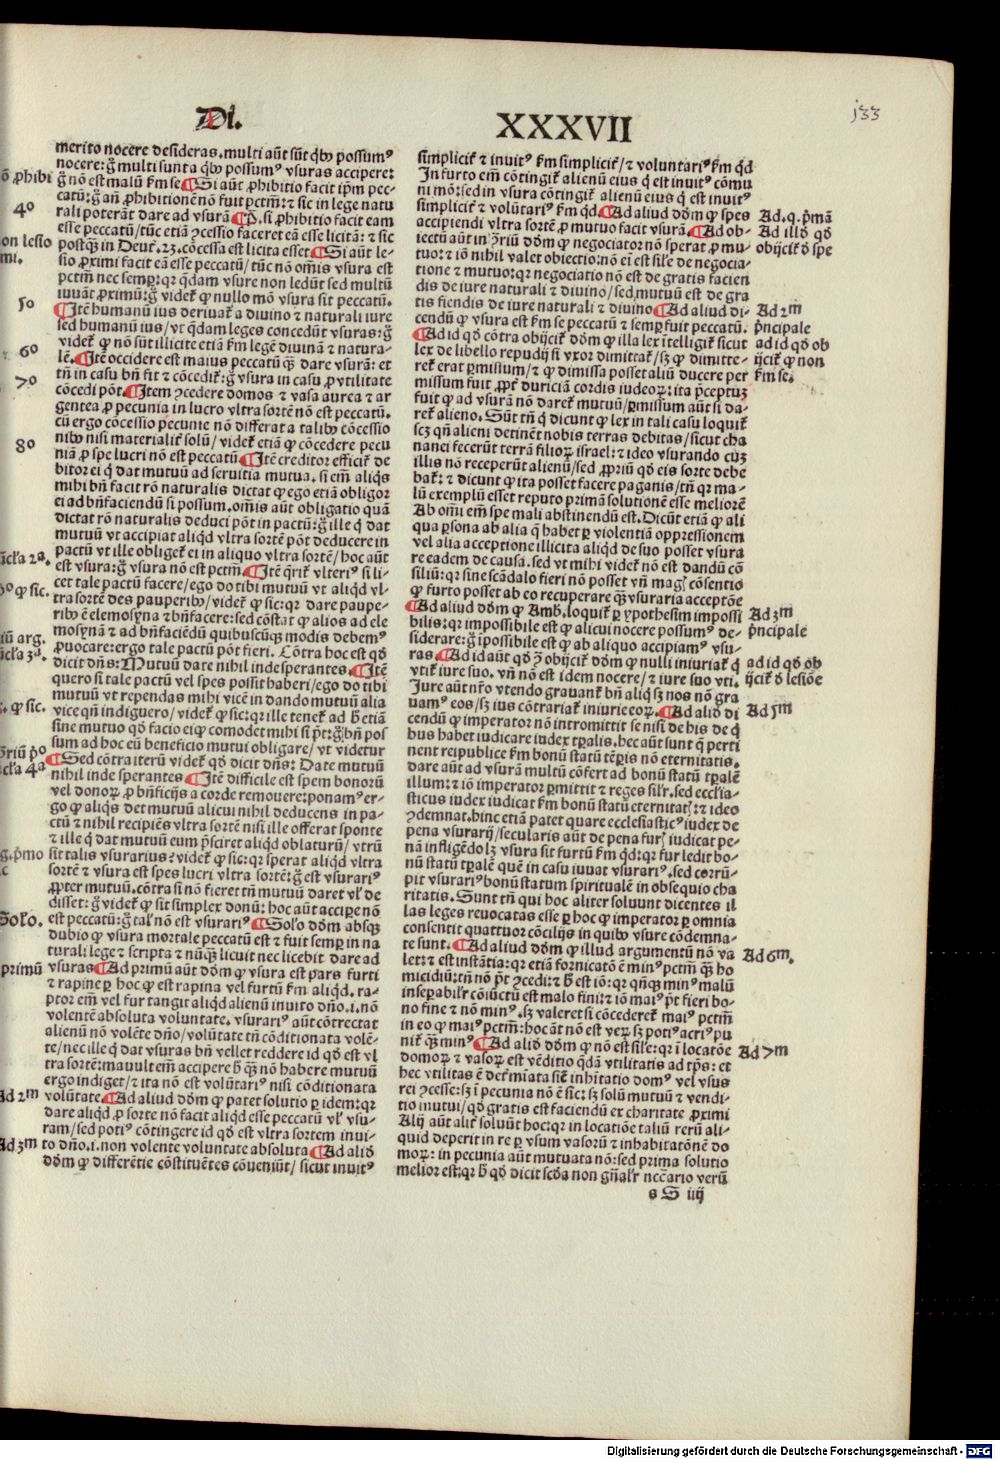 Di.
XXXVII
133
merito nocere desideras. multi aūt sūt qb᷒ possum᷒
nocere: g̃ multi sunt a qb᷒ possum᷒ vsuras accipere:
g̃ nō est malū km se ¶ Si aūt ꝓhibitio facit ip̄m pec-
catū: g̃ añ ꝓhibitionē nō fuit pctm̄: ⁊ sic in lege natu
rali poterāt dare ad vsurā ¶ P̄. si ꝓhibitio facit eam
esse peccatū/ tūc etiā ꝯcessio faceret eā esse licitā: ⁊ sic
postꝙ̄ in Deut̉. 23. cōcessa est licita esset ¶ Si aūt le-
sio ꝓximi facit eā esse peccatū/ tūc nō om̄is vsura est
pctm̄ nec semꝑ: qr q̄dam vsure non ledūt sed multū
iuuāt ꝓximū: g̃ videt̉ ꝙ nullo mō vsura sit peccatū.
¶ Itē humanū ius deriuat̉ a diuino ⁊ naturali iure
sed humanū ius/ vt q̄dam leges concedūt vsuras: g̃
videt̉ ꝙ nō sūt illicite etiā km legē diuinā ⁊ natura-
lē. ¶ Itē occidere est maius peccatū ꝙ̄ dare vsurā: et
tn̄ in casu bn̄ fit ⁊ cōcedit̉: g̃ vsura in casu ꝓ vtilitate
cōcedi pōt. ¶ Item ꝯcedere domos ⁊ vasa aurea ⁊ ar
gentea ꝓ pecunia in lucro vltra sortē non est peccatū.
cū ergo cōcessio pecunie nō differat a talib᷒ cōcessio
nib᷒ nisi materialit̉ solū/ videt̉ etiā ꝙ cōcedere pecu
niā ꝓ spe lucri nō est peccatū ¶ Itē creditor efficit̉ de
bitor ei q̇ dat mutuū ad seruitia mutua. si em̄ aliq̇s
mihi bn̄ facit rō naturalis dictat ꝙ ego etiā obligor
ei ad bn̄faciendū si possum. om̄is aūt obligatio quā
dictat rō naturalis deduci pōt in pactū: g̃ ille q̇ dat
mutuū vt accipiat aliqd vltra sortē pōt deducere in
pactū vt ille obliget̉ ei in aliquo vltra sortē/ hoc aūt
est vsura: g̃ vsura nō est pctm̄. ¶ Itē q̄rit̉ vlteri᷒ si li-
cet tale pactū facere/ ego do tibi mutuū vt aliqd vl-
tra sortē des pauperib᷒/ videt̉ ꝙ sic: qr dare paupe-
rib᷒ ē elemosyna ⁊ bn̄facere: sed cōstat ꝙ alios ad ele
mosynā ⁊ ad bn̄faciēdū quibuscūqꝫ modis debem᷒
ꝓuocare: ergo tale pactū pōt fieri. Cōtra hoc est qđ
dicit dn̄s: Mutuū date nihil indesperantes. ¶ Itē
quero si tale pactū vel spes possit haberi/ ego do tibi
mutuū vt rependas mihi vicē in dando mutuū alia
vice qn̄ indiguero/ videt̉ ꝙ sic: qr ille tenet̉ ad h̄ etiā
sine mutuo qđ facio eiqꝫ comodet mihi si p̄t: g̃ bn̄ pos
sum ad hoc eū beneficio mutui obligare/ vt videtur
¶ Sed cōtra iterū videt̉ qđ dicit dn̄s: Date mutuū
nihil inde sperantes ¶ Itē difficile est spem bonorū
vel donoꝝ ꝓ bn̄ficijs a corde remouere: ponam᷒ er-
go ꝙ aliq̇s det mutuū alicui nihil deducens in pa-
ctū ⁊ nihil recipiēs vltra sortē nisi ille offerat sponte
⁊ ille q̇ dat mutuū eum p̄sciret aliqd oblaturū/ vtrū
sit talis vsurarius? videt̉ ꝙ sic: qr sperat aliqd vltra
sortē ⁊ vsura est spes lucri vltra sortē: g̃ est vsurari᷒
ꝓpter mutuū. cōtra si nō fieret tn̄ mutuū daret vl̓ de
disset: g̃ videt̉ ꝙ sit simplex donū: hoc aūt accipe nō
est peccatū: g̃ tal̓ nō est vsurari᷒ ¶ Solo dōm absqꝫ
dubio ꝙ vsura mortale peccatū est ⁊ fuit semꝑ in na
turali lege ⁊ scripta ⁊ nūꝙ̄ licuit nec licebit dare ad
vsuras ¶ Ad primū aūt dōm ꝙ vsura est pars furti
⁊ rapine ꝑ hoc ꝙ est rapina vel furtū km aliqd. ra-
ptor em̄ vel fur tangit aliqd alienū inuito dn̄o .i. nō
volentē absoluta voluntate. vsurari᷒ aūt cōtrectat
alienū nō volēte dn̄o/ volūtate tn̄ cōditionata volē-
te/ nec ille q̇ dat vsuras bn̄ vellet reddere id qđ est vl
tra sortē: mauult em̄ accipere h̄ ꝙ̄ nō habere mutuū
ergo indiget/ ⁊ ita nō est volūtari᷒ nisi cōditionata
volūtate. ¶ Ad aliud dōm ꝙ patet solutio ꝑ idem: qr
dare aliqd ꝓ sorte nō facit aliqd esse peccatū vl̓ vsu-
ram/ sed poti᷒ cōtingere id qđ est vltra sortem inui-
to dn̄o .i. non volente voluntate absoluta ¶ Ad aliđ
dōm ꝙ differētie cōstituētes cōueniūt/ sicut inuit᷒
simplicit̉ ⁊ inuit᷒ km simplicit̉/ ⁊ voluntari᷒ km qđ
In furto em̄ cōtingit̉ alienū eius q̇ est inuit᷒ cōmu
ni mō: sed in vsura cōtingit̉ alienū eius q̇ est inuit᷒
simplicit̉ ⁊ volūtari᷒ km qđ. ¶ Ad aliud dōm ꝙ spes
accipiendi vltra sortē ꝓ mutuo facit vsurā. ¶ Ad ob-
iectū aūt in ꝯriū dōm ꝙ negociator nō sperat ꝓ mu-
tuo: ⁊ iō nihil valet obiectio: nō ei̅ est sil̓e de negocia-
tione ⁊ mutuo: qr negociatio nō est de gratis facien
dis de iure naturali ⁊ diuino/ sed mutuū est de gra
tis fiendis de iure naturali ⁊ diuino ¶ Ad aliud di-
cendū ꝙ vsura est km se peccatū ⁊ semꝑ fuit peccatū.
¶ Ad id qđ cōtra obijcit̉ dōm ꝙ illa lex ītelligit̉ sicut
lex de libello repudij si vxor dimittat̉/ sꝫ ꝙ dimitte-
ret̉ erat ꝑmisium/ ⁊ ꝙ dimissa posset aliū ducere per
missum fuit ꝓpt̉ duriciā cordis iudeoꝝ: ita p̄ceptuꝫ
fuit ꝙ ad vsurā nō daret̉ mutuū/ ꝑmissum aūt si da-
ret̉ alieno. Sūt tn̄ q̇ dicunt ꝙ lex in tali casu loquit̉
scꝫ qn̄ alieni detinēt nobis terras debitas/ sicut cha
nanei fecerūt terrā filioꝝ israel: ⁊ ideo vsurando cuꝫ
illis nō receperūt alienū/ sed ꝓpriū qđ eis sorte debe
bat̉: ⁊ dicunt ꝙ ita posset facere paganis/ tn̄ qr ma-
lū exemplū esset reputo primā solutionē esse meliorē
Ab om̄i em̄ spe mali abstinendū est. Dicūt etiā ꝙ ali
qua ꝑsona ab alia q̄ habet ꝑ violentiā oppressionem
vel alia acceptione illicita aliqd de suo posset vsura
re eadem de causa. sed vt mihi videt̉ nō est dandū cō
siliū: qr sine scādalo fieri nō posset vn̄ magꝭ cōsentio
ꝙ furto posset ab eo recuperare ꝙ̄ vsuraria acceptōe
¶ Ad aliud dōm ꝙ Amb. loquit̉ ꝑ ypothesim impossi
bilis: qr impossibile est ꝙ alicui nocere possum᷒ de-
siderare: g̃ īpossibile est ꝙ ab aliquo accipiam᷒ vsu-
ras. ¶ Ad id aūt qđ ꝯ obijcit̉ dōm ꝙ nulli iniuriat̉ q̇
vtit̉ iure suo. vn̄ nō est idem nocere/ ⁊ iure suo vti.
Iure aūt nr̄o vtendo grauant̉ bn̄ aliq̇ sꝫ nos nō gra
uam᷒ eos/ sꝫ ius cōtrariat̉ iniurie eoꝝ. ¶ Ad aliđ di
cendū ꝙ imperator nō intromittit se nisi de his de q̇
bus habet iudicare iudex tꝑalis. hec aūt sunt q̄ perti
nent reipublice km bonū statū tēꝑis nō eternitatis.
dare aūt ad vsurā multū cōfert ad bonū statū tꝑalē
illum: ⁊ iō imperator ꝑmittit ⁊ reges sil̓r. sed eccl̓ia-
sticus iudex iudicat km bonū statū eternitatꝭ: ⁊ ideo
ꝯdemnat. hinc etiā patet quare ecclesiastic᷒ iudex de
pena vsurarij/ secularis aūt de pena furꝭ iudicat pe-
nā infligēdo lꝫ vsura sit furtū km qđ: qr fur ledit bo-
nū statū tꝑalē quē in casu iuuat vsurari᷒. sed corrū-
pit vsurari᷒ bonū statum spiritualē in obsequio cha
ritatis. Sunt tn̄ qui hoc aliter soluunt dicentes il
las leges reuocatas esse ꝑ hoc ꝙ imperator ꝑ omnia
consentit quattuor cōcilijs in quib᷒ vsure cōdemna-
te sunt. ¶ Ad aliud dōm ꝙ illud argumentū nō va
let: ⁊ est instātia: qr etiā fornicatō ē min᷒ pctm̄ ꝙ̄ ho
micidiū: tn̄ nō p̄t ꝯcedi: ⁊ h̄ est iō: qr qn̄qꝫ min᷒ malū
inseꝑabil̓r cōiūctū est malo fini: ⁊ iō mai᷒ p̄t fieri bo-
no fine ⁊ nō min᷒. sꝫ valeret si cōcederet̉ mai᷒ pctm̄
in eo ꝙ mai᷒ pctm̄: hoc aūt nō est veꝝ sꝫ poti᷒ acri᷒ pu
nit̉ ꝙ̄ min᷒ ¶ Ad aliđ dōm ꝙ nō est sil̓e: qr ī locatōe
domoꝝ ⁊ vasoꝝ est vēditio q̄dā vtilitatis ad tp̄s: et
hec vtilitas ē det̉mīata sic̉ inhītatio dom᷒ vel vsus
rei ꝯcesse: sꝫ ī pecunia nō ē sic: sꝫ solū mutuū ⁊ vendi-
tio mutui/ qđ gratis est faciendū ex charitate ꝓximi
Alij aūt alit̉ soluūt hoc: qr in locatiōe taliū rerū ali-
quid deperit in re ꝑ vsum vasorū ⁊ inhabitatōnē do
moꝝ: in pecunia aūt mutuata nō: sed prima solutio
melior est: qr h̄ qđ dicit scđa non gn̄al̓r nec̄cario verū
s S iiij
ō ꝓhibi
4º
on lesio
mi.
5º
6º
7º
8º
ic̄la 2ª.
ꝙ sic.
iū arg.
ic̄la 3ª.
ꝙ sic.
ꝯriū p̄º
c̄la 4ª
g. p̄mo
c
Solo.
primū
Ad 2m
Ad 3m
Ad .q. p̄mā
Ad illđ qđ
obijcit̉ đ spe
Ad 2m
p̄ncipale
ad id qđ ob
ijcit̉ ꝙ non
km se.
Ad 3m
p̄ncipale
ad id qđ ob
ijcit̉ đ lesiōe
Ad 5m
Ad 6m.
Ad 7m
Digitalisierung gefördert durch die Deutsche Forschungsgemeinschaft - DFG